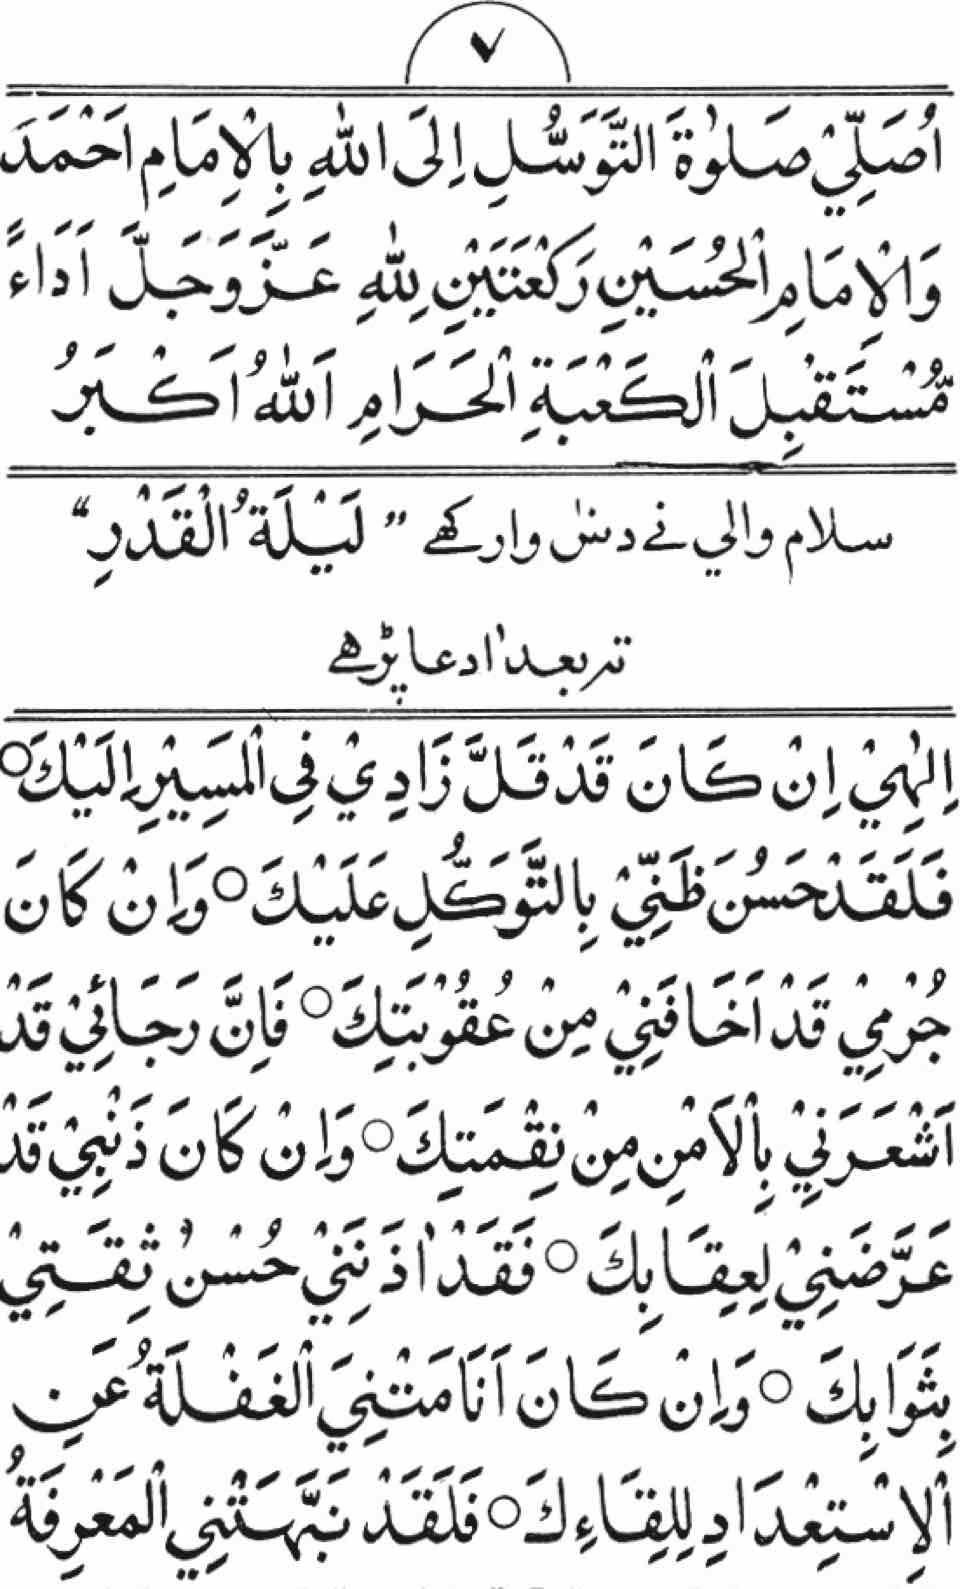 ٧
اُصَلِّيْ صَلٰوةَ التَّوَسُّلِ اِلَى اللهِ بِالْاِمَامِ اَحْمَدَ
وَالْاِمَامِ الْحُسَيْنِ رَكْعَتَيْنِ لِلّٰهِ عَزَّ وَجَلَّ اَدَاءً
مُّسْتَقْبِلَ الْكَعْبَةِ الْحَرَامِ اَللهُ اَكْبَرُ
سلام والي نے دسٰ وار كهے " لَيْلَةُ الْقَدْرِ "
تہ بعد اٰ دعا پڑهے
اِلٰهِيْ اِنْ كَانَ قَدْ قَلَّ زَادِيْ فِى الْمَسِيْرِ اِلَيْكَ ○
فَلَقَدْ حَسُنَ ظَنِّيْ بِالتَّوَكُّلِ عَلَيْكَ ○ وَاِنْ كَانَ
جُرْمِيْ قَدْ اَخَافَنِيْ مِنْ عُقُوْبَتِكَ ○ فَاِنَّ رَجَائِيْ قَدْ
اَشْعَرَنِيْ بِالْاَمْنِ مِنْ نِقْمَتِكَ ○ وَاِنْ كَانَ ذَنْبِيْ قَدْ
عَرَّضَنِيْ لِعِقَابِكَ ○ فَقَدْ اٰذَنَنِيْ حُسْنُ ثِقَتِيْ
بِثَوَابِكَ ○ وَاِنْ كَانَ اَنَامَتْنِيَ الْغَفْلَةُ عَنِ
الْاِسْتِعْدَادِ لِلِقَاءِكَ ○ فَلَقَدْ نَبَّهَتْنِي الْمَعْرِفَةُ